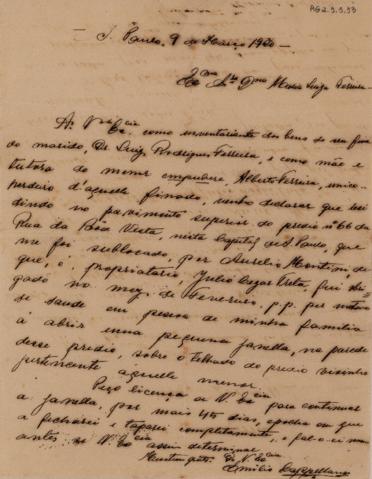 RG2.5.5.53
S. Paulo, 9 de Março 1920
Exma Sra Dna Maria Luiza Ferreira
A V. Excia
como inventariante dos bens do seu fina
do marido, Dr Luiz Rodrigues Ferreira, e como mãe e
tutora do menor impubere, Alberto Ferreira, unico
herdeiro d'aquelle finado, venho declarar que resi
dindo no pavimento superior do predio nº 66 da
Rua da Bôa Vista, nesta Capital de S. Paulo, que
me foi sublocado, por Aurelio
que, o proprietario, Julio Cezar, fui obri
gado no mez de Fevereiro, p.p. por motivo
de saude em pessoa de minha familia
á abrir uma pequena janella, na parede
desse predio, sobre o telhado do predio visinho
pertencente aquelle menor.
Peço licença a V. Excia para continuar
a janella, por mais 45 dias, epocha em que
a fecharei e taparei completamente, e fal-o-ei
antes se V. Excia assim determinar.
De V. Excia
Emilio